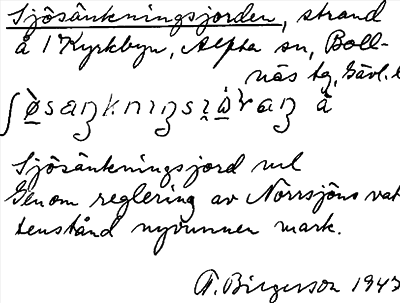 Sjösänkningsjorden, strand
å 1 Kyrkbyn, Alfta sn, Boll-
näs tg, Gävl. l
å
Sjösänkningsjord uel
Genom reglering av Norrsjöns vat
tenstånd nyvunnen mark.
T. Birgerson 1947